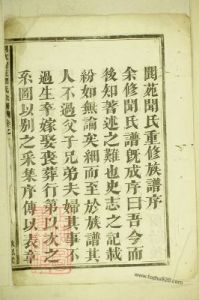 閩苑聞氏重修族譜序
余修聞氏譜旣成序曰吾今而
後知著述之難也史志之記載
紛如無論矣細而至於族譜其
人不過父子兄弟夫婦其事不
過生卒嫁娶喪葬行第以次之
系圖以别之采集序傳以表章